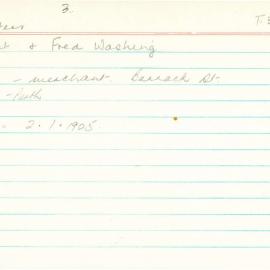 3.
& Fred Washing
- merchant Barrack St-
- Perth
- 2.1.1905